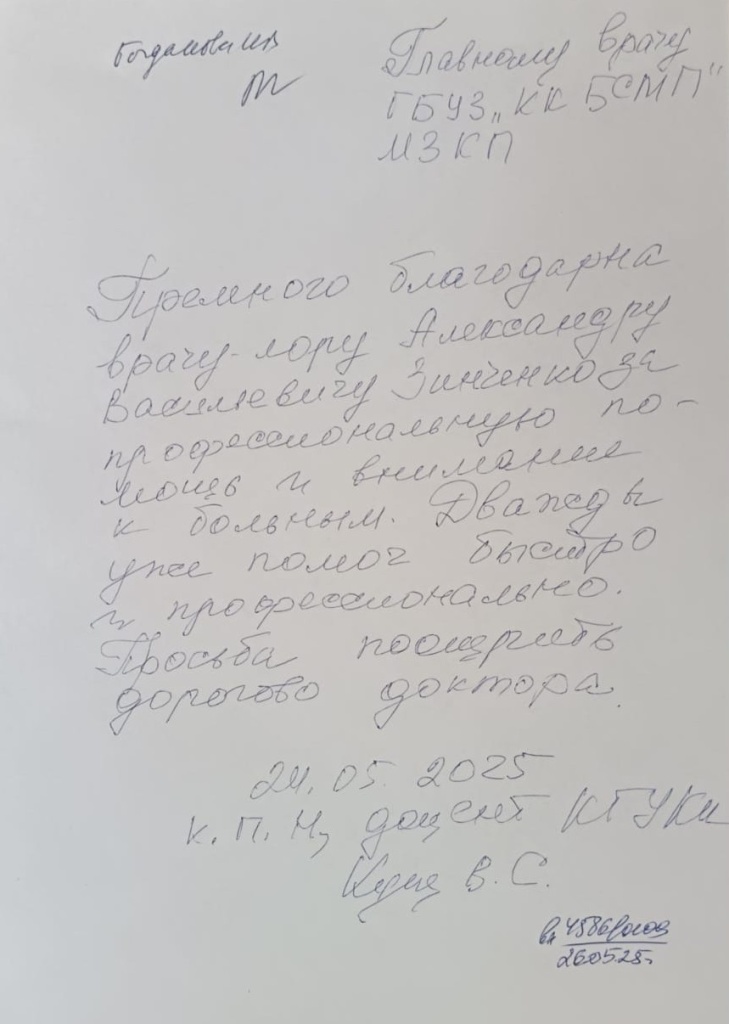 Богданов
Главному врачу
ГБУЗ „КК БСМП"
МЗ КП
Премного благодарна
врачу-лору Александру
Василиевичу Зинченко за
профессиональную по-
мощь и внимание
к больным. Дважды
уже помог быстро
и профессионально.
Просьба поощрить
дорогово доктора.
24.05.2025
к.п.н, доцент КГУКи
В.С.
260525г.